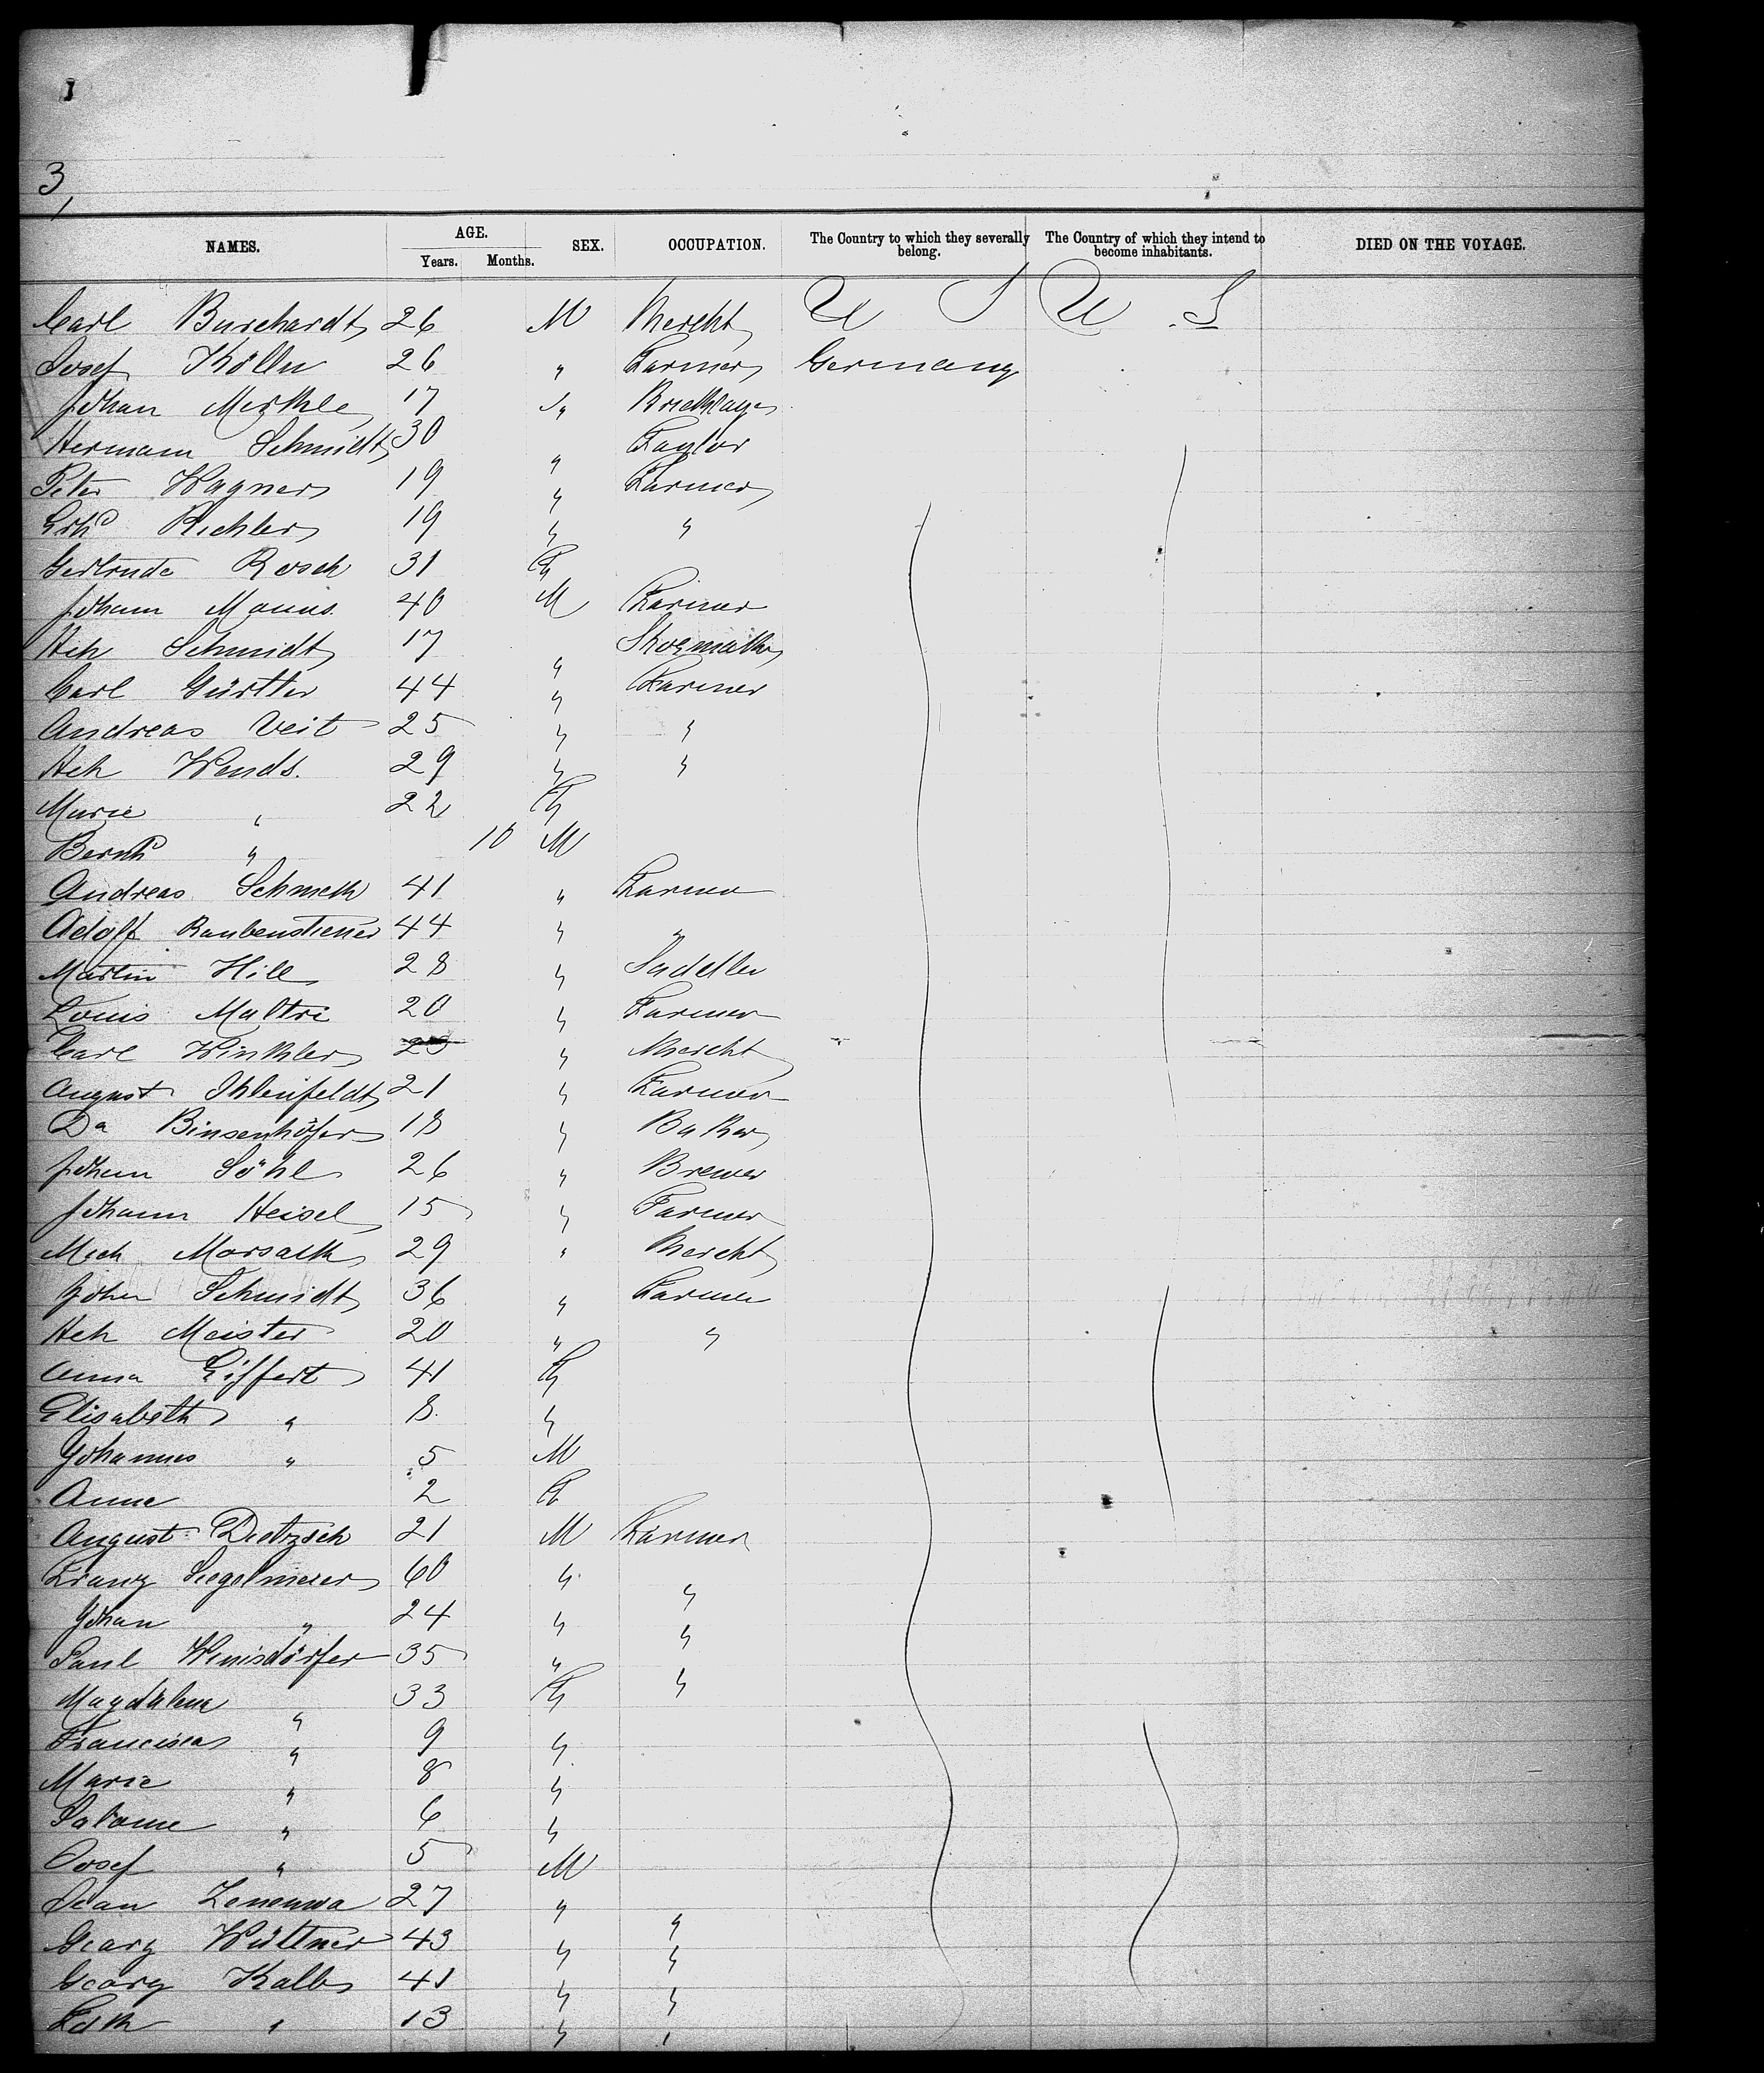 3,
NAMES. AGE. SEX. OCCUPATION. The Country to which they severally belong. The Country of which they intend to become inhabitants. DIED ON THE VOYAGE.
Years. Months.
Carl Burchardt 26 M Mercht U S U.S
Josef Kölln 26 " Farmer Germany
Johan Merkle 17 " Bricklayer
Hermann Schmidt 30 " Taylor
Peter Wagner 19 " Farmer
Richler 19 " "
Gertrude Rosch 31 F
Johann Manns. 40 M Farmer
Hch Schmidt 17 " Shoemaker
Carl Gürtler 44 " Farmer
Andreas Veit 25 " "
Hch Wends. 29 " "
Marie " 22 F
Bernhd " 10 M
Andreas Schmeth 41 " Farmer
Adolf Raubenstiener 44 " "
Martin Hill 28 " Sadeller
Louis Maltri 20 " Farmer
Carl Winkler 25 " Mercht
August Ihlenfeldt 21 " Farmer
Da Binsenhöfer 18 " Baker
Johan Söhl 26 " Brewer
Johann Heisel 15 " Farmer
Mich Morsalk 29 " Mercht
John Schmidt 36 " Farmer
Hch Meister 20 " "
Anna Eiffert 41 F
Elisabeth " 8. "
Johannes " 5 M
Anna 2 F
August Dietzsch 21 M Farmer
Franz Siegelmeier 60 " "
Johan " 24 " "
Paul Wenisdörfer 35 " "
Magdalena " 33 F
Francisca " 9 "
Marie " 8 "
Salome " 6 "
Josef " 5 M
Jean Zenenwa 27 " "
Georg Wüttner 43 " "
Georg Kalb 41 " "
" 13 " "